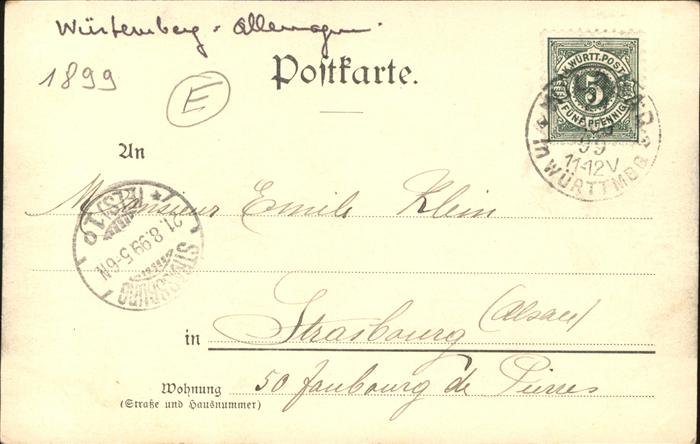 Würtemberg - Allemagne
1899
E
Postkarte.
K. WÜRTT. POST
5
FÜNF PFENNIG
99
11-12V
in WÜRTTMBG
An
Monsieur Emile Klein
STRASSBURG
21.8.99.5-6N
in Strasbourg (Alsace)
Wohnung 50 faubourg de Pierres
(Straße und Hausnummer)